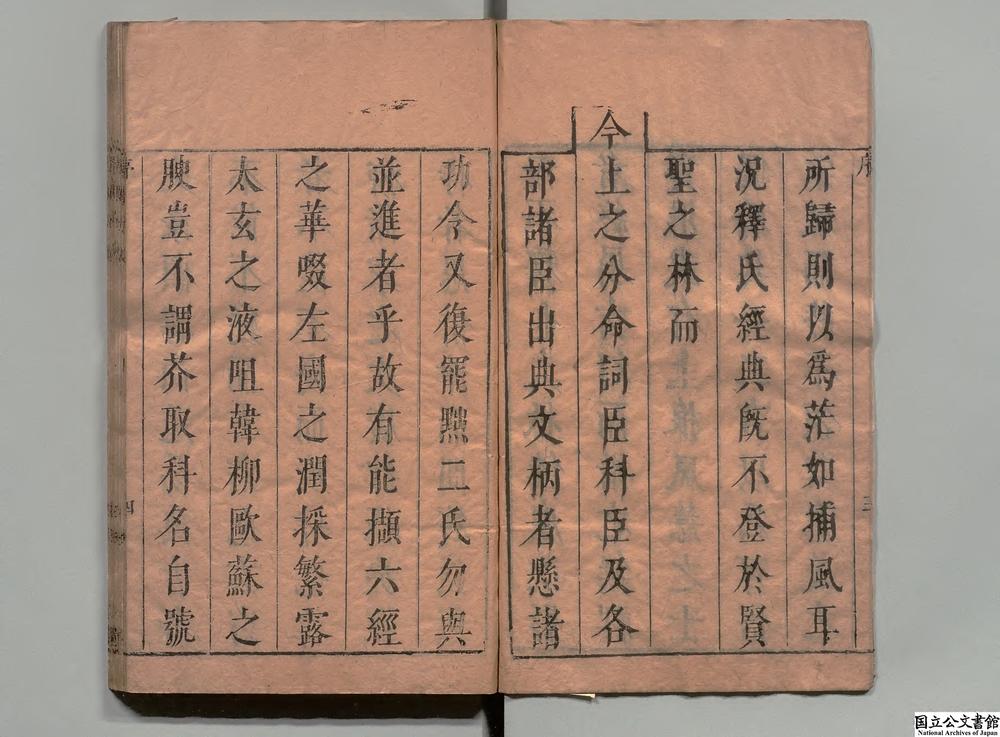 所歸則以爲茫如捕風耳
况釋氏經典旣不登於賢
聖之林而
今上之分命詞臣科臣及各
部諸臣出典文柄者懸諸
功令又復罷黜二氏勿與
並進者乎故有能擷六經
之華啜左國之潤採繁露
太玄之液咀韓柳歐蘇之
腴豈不謂芥取科名自號
序
三
四
国立公文書館
National Archives of Japan